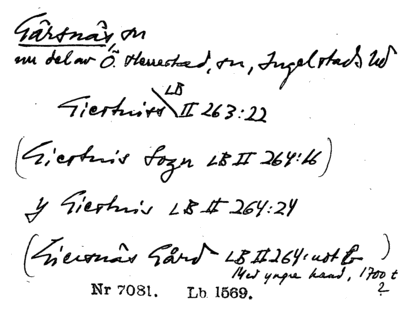 Gärsnäs, sn
nu del av Ö. Herrestad, sn, Ingelstads hd
Giertniss LB II 263:22
(Giertnis Sogn LB II 264:16)
y Giertnis LB II 264:24
(Giersnäs Gård LB II 264: )
Med yngre hand, 1700 t
?
Nr 7081. Lb 1569.